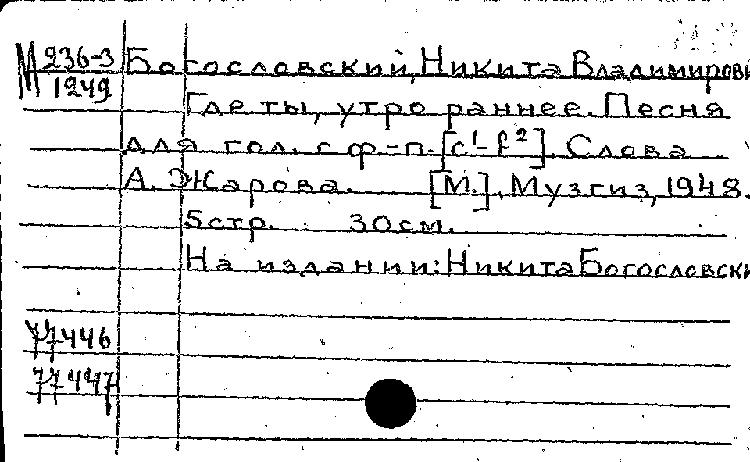 М 236-3
1249
Богословский, Никита Владимирови
Где ты, утро раннее. Песня
для гол. с ф-п. [c¹-f²]. Слова
А. Жарова. [М.], Музгиз, 1948.
5стр. 30см.
На издании: Никита Богословски
77446
77447